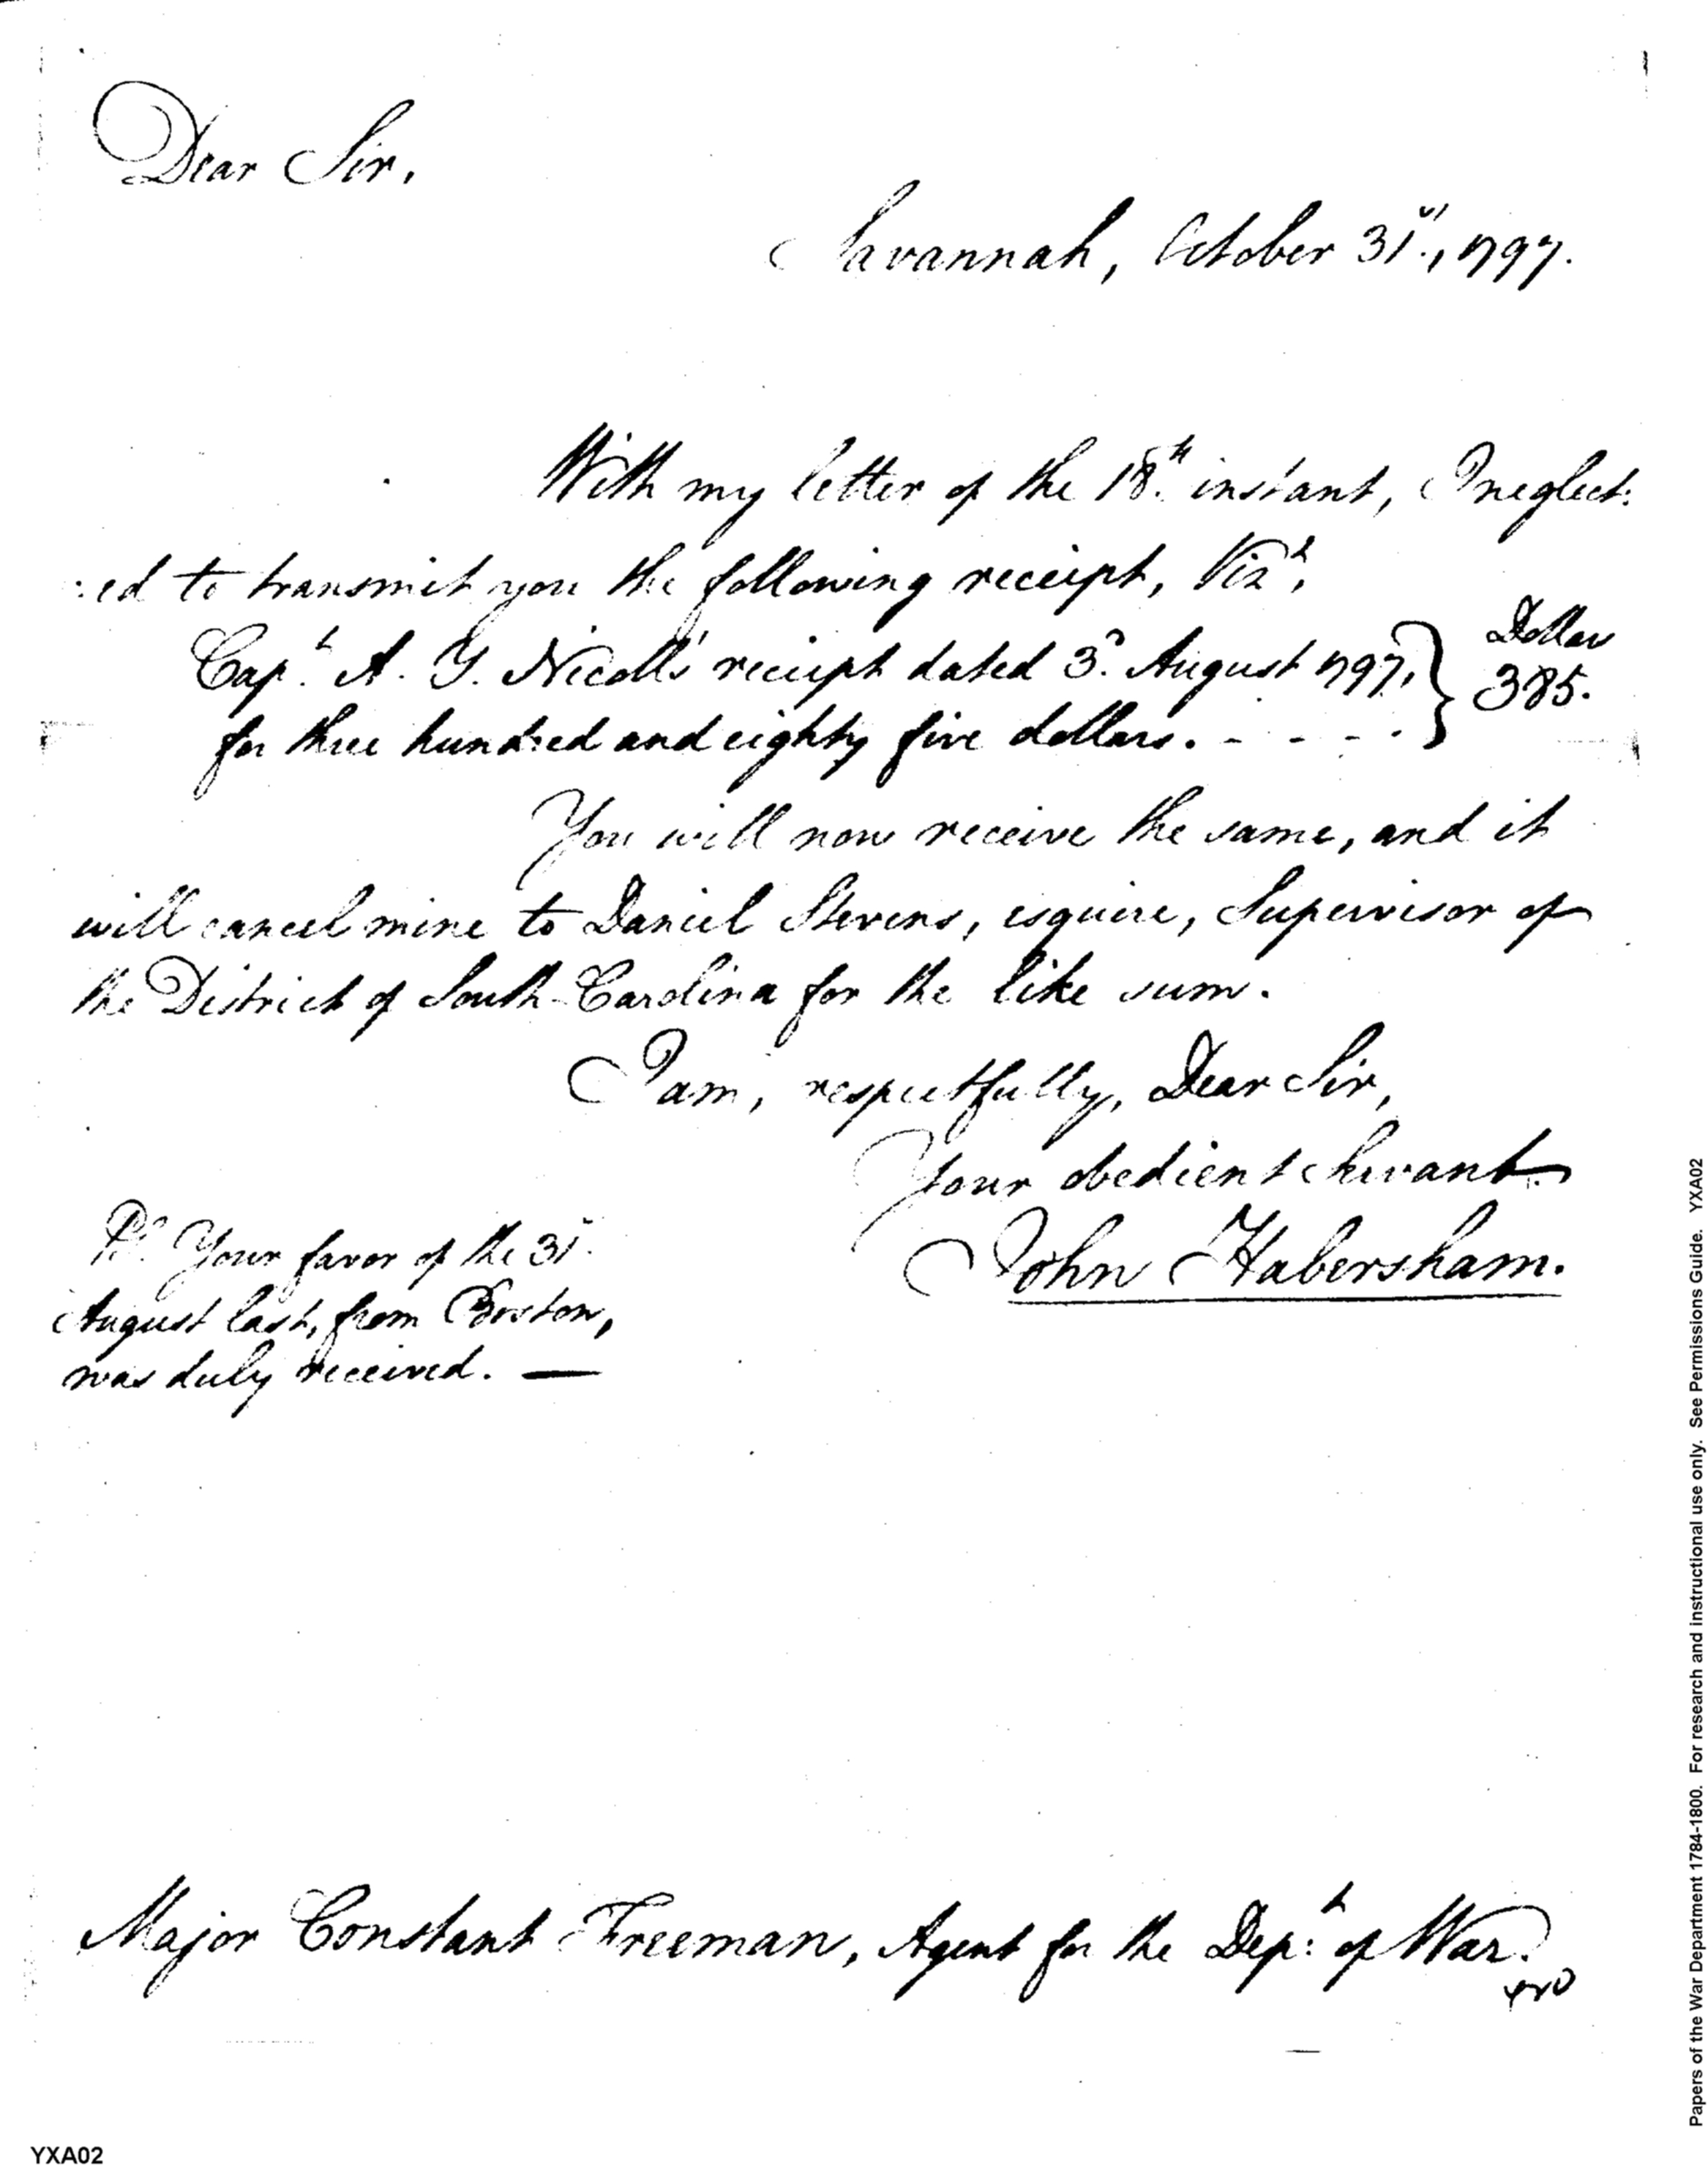 Dear Sir,
Savannah, October 31st, 1797.
With my letter of the 18th. instant, I neglect:
:ed to transmit you the following receipt, Vizt,
Capt. A. Y. Nicoll's receipt dated 3d. August 1797, } Dollars
for three hundred and eighty five dollars. - - - - } 385.
You will now receive the same, and it
will cancel mine to Daniel Stevens, esquire, Supervisor of
the District of South-Carolina for the like sum.
I am, respectfully, Dear Sir,
Your obedient Servant.
John Habersham.
PS. Your favor of the 31st.
August last, from Boston,
was duly received. —
Major Constant Freeman, Agent for the Dept: of War.
YXA02
Papers of the War Department 1784-1800. For research and instructional use only. See Permissions Guide. YXA02